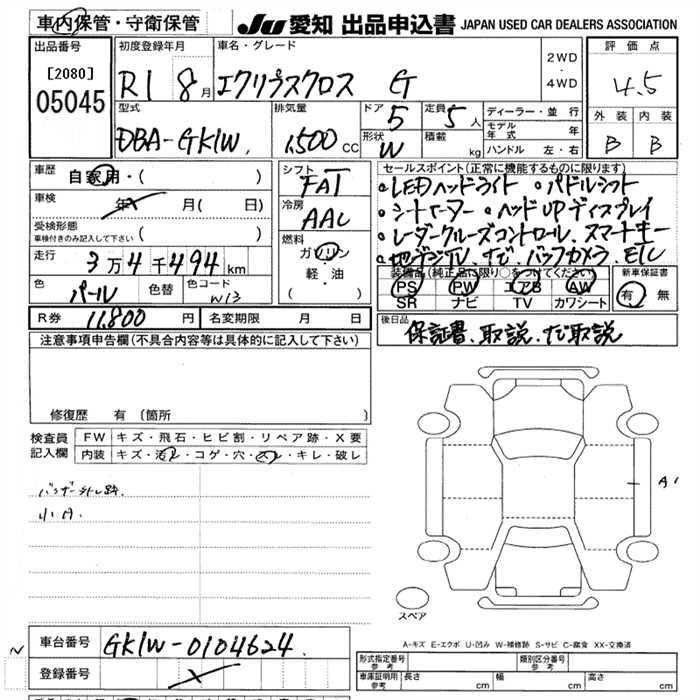 車内保管・守衛保管
JU 愛知 出品申込書 JAPAN USED CAR DEALERS ASSOCIATION
出品番号
[2080]
05045
初度登録年月
R1 8月
車名・グレード
エクリプスクロス G
2WD
・
4WD
評価点
4.5
外装 内装
B B
型式
DBA-GK1W
排気量
1,500 CC
ドア 5
形状 W
定員 5人
積載 kg
ディーラー・並行
モデル年式 年
ハンドル 左・右
車歴 自家用・( )
車検 年 月( 日)
受検形態
車検付きのみ記入して下さい ( )
走行 3万4千494km
色 パール 色替 色コード W13
シフト
FAT
冷房
AAC
燃料
ガソリン
軽・油
( )
セールスポイント(正常に機能するものに限ります)
。LEDヘッドライト 。パドルシフト
。シートヒーター 。ヘッドUPディスプレイ
。レーダークルーズコントロール、スマートキー
。地デジTV、ナビ、バックカメラ、ETC
装備品(純正品に限り○をつけてください)
PS PW エアB AW
SR ナビ TV カワシート
新車保証書
有 無
R券 11,800 円 名変期限 月 日
後日品
保証書、取説、ナビ取説
注意事項申告欄(不具合内容等は具体的に記入して下さい)
修復歴 有 〔箇所 〕
検査員記入欄
FW キズ・飛石・ヒビ割・リペア跡・X要
内装 キズ・汚レ・コゲ・穴・スレ・キレ・破レ
小A
A1
スペア
A-キズ E-エクボ U-凹み W-補修跡 S-サビ C-腐食 XX-交換済
車台番号 GK1W-0104624
登録番号
形式指定番号 参考
類別区分番号 参考
車庫証明用 参考 長さ cm 幅 cm 高さ cm